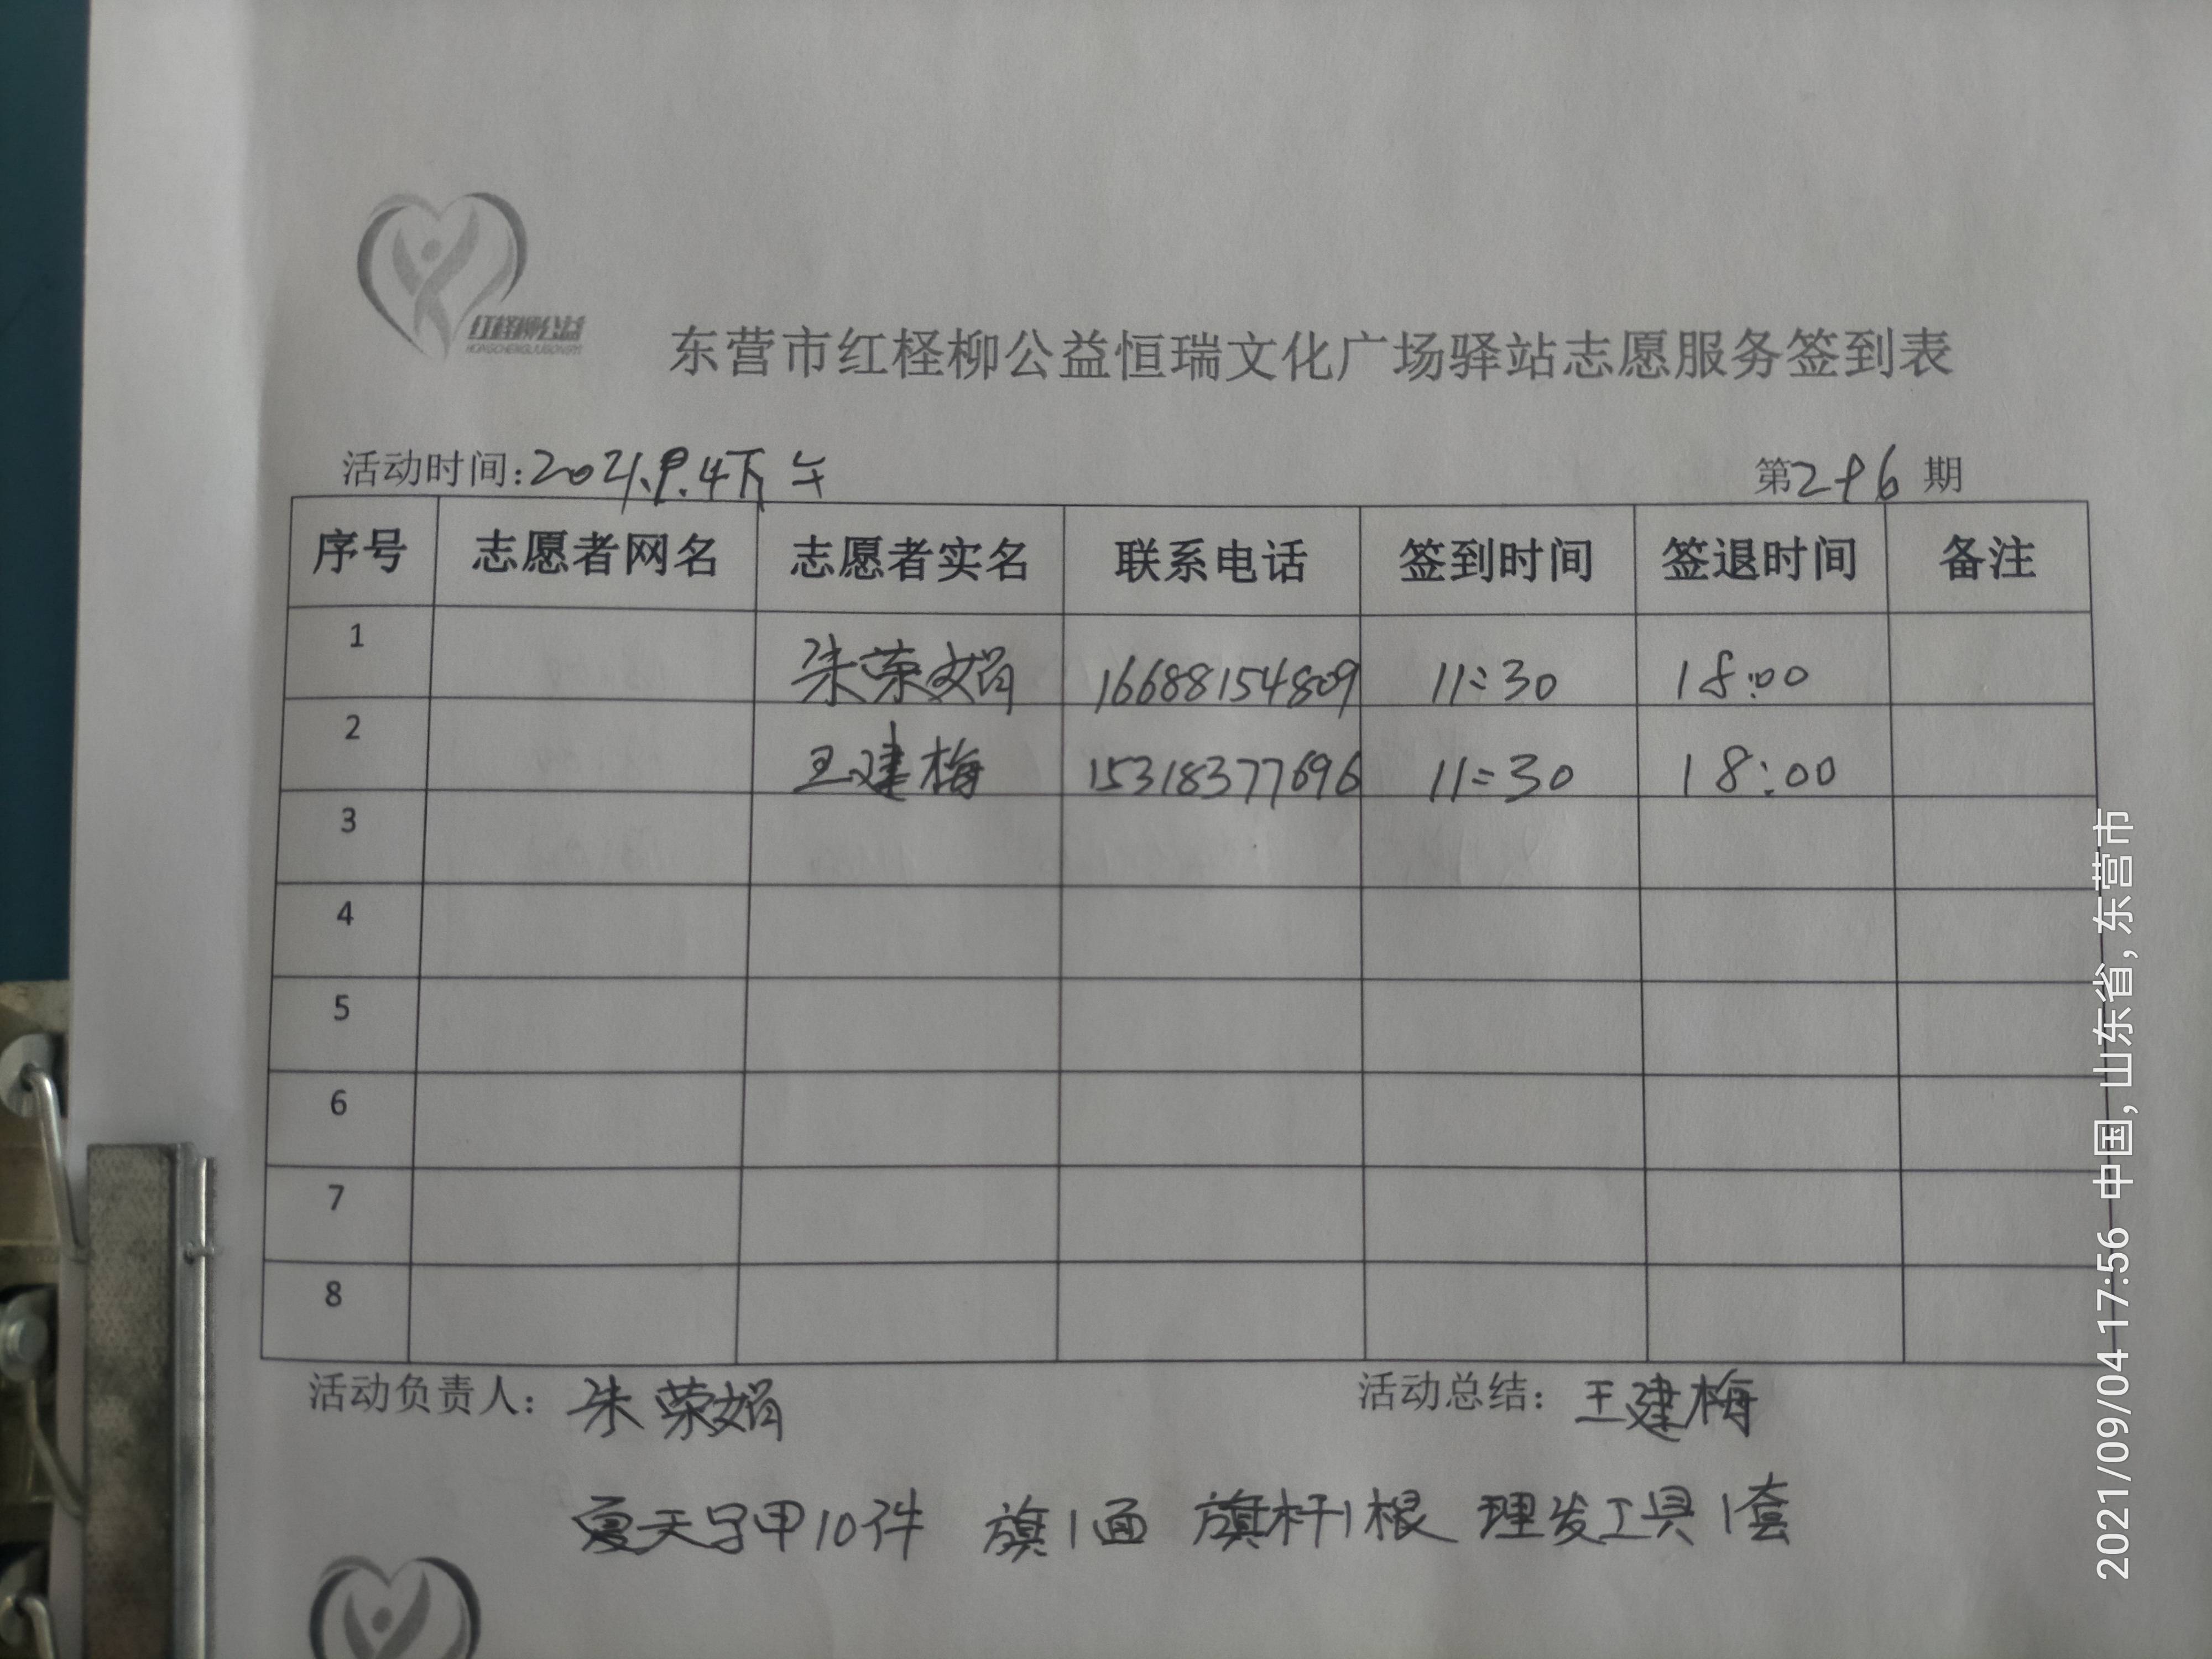 红柽柳公益
HONGCHENGLIUGONGYI
东营市红柽柳公益恒瑞文化广场驿站志愿服务签到表
活动时间:2021.9.4下午 第296期
序号 志愿者网名 志愿者实名 联系电话 签到时间 签退时间 备注
1 朱荣娟 16688154809 11:30 18:00
2 王建梅 15318377696 11:30 18:00
3
4
5
6
7
8
活动负责人: 朱荣娟 活动总结: 王建梅
夏天马甲10件 旗1面 旗杆1根 理发工具1套
2021/09/04 17:56 中国, 山东省, 东营市